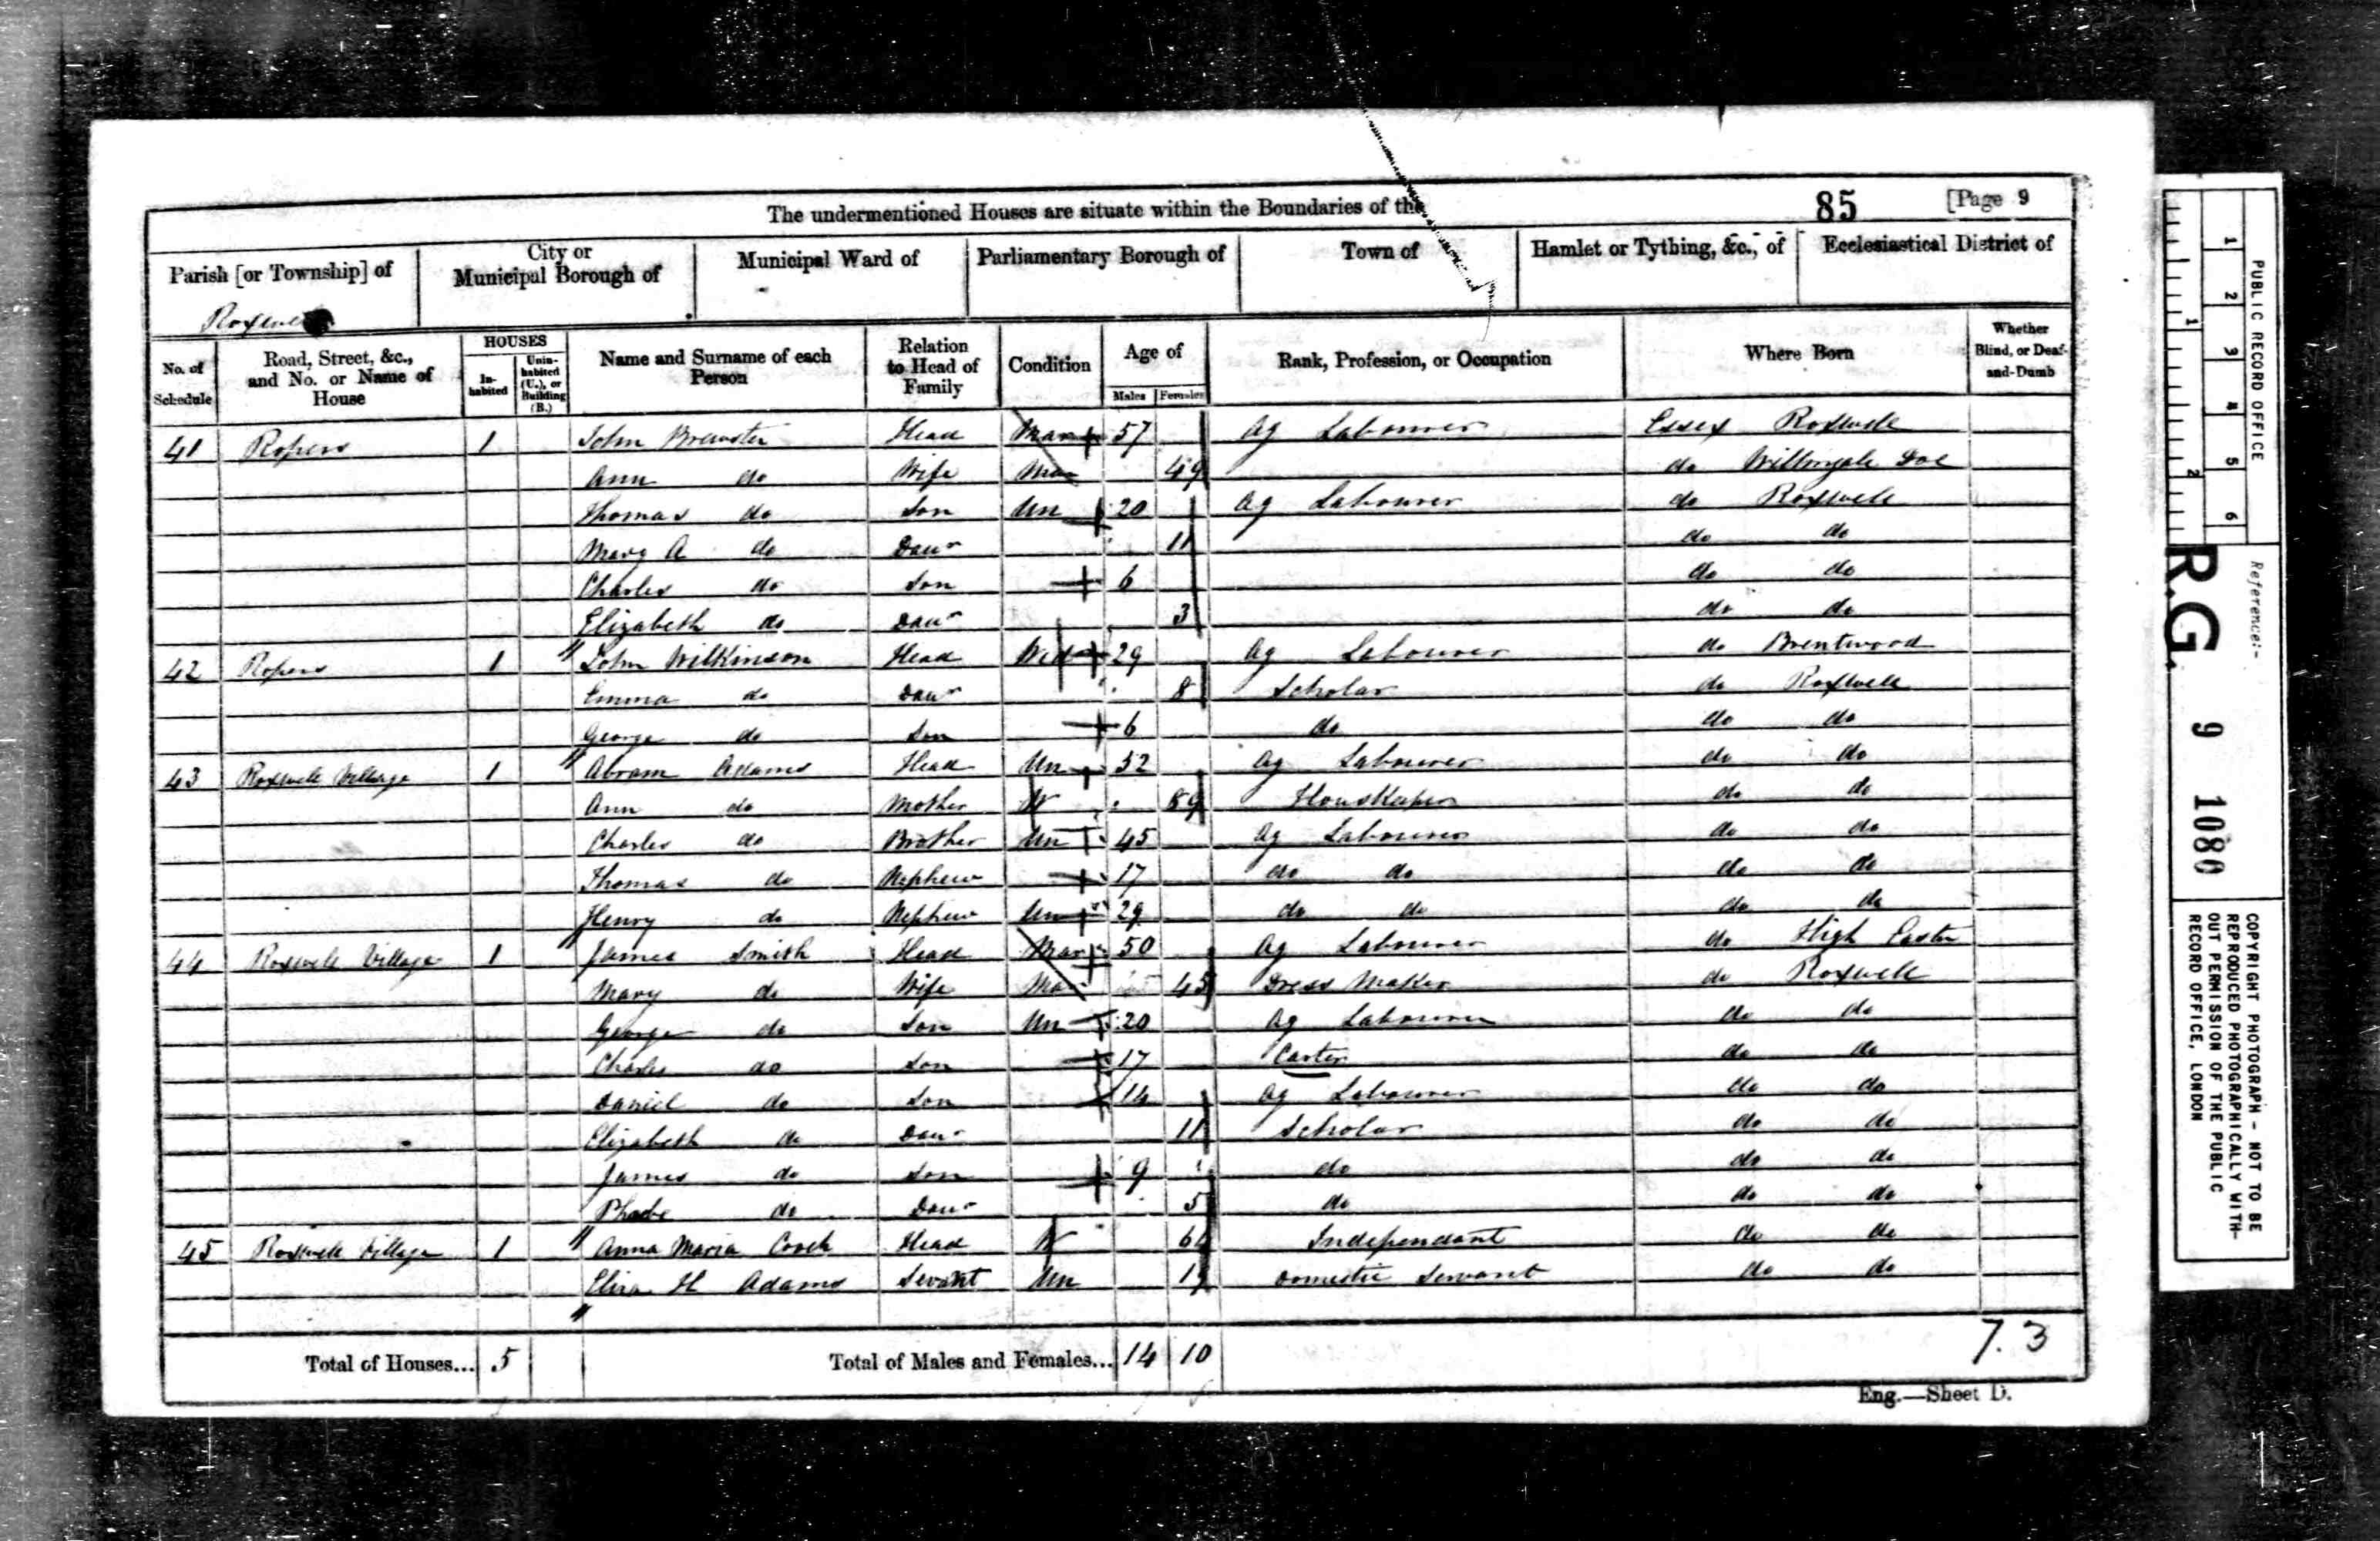 The undermentioned Houses are situate within the Boundaries of the
85 [Page 9
Parish [or Township] of
City or Municipal Borough of
Municipal Ward of
Parliamentary Borough of
Town of
Hamlet or Tything, &c., of
Ecclesiastical District of
No. of Schedule
Road, Street, &c., and No. or Name of House
HOUSES
In-habited
Unin-habited (U.), or Building (B.)
Name and Surname of each Person
Relation to Head of Family
Condition
Age of
Males
Females
Rank, Profession, or Occupation
Where Born
Whether Blind, or Deaf-and-Dumb
41 Ropers 1 John Brewster Head Mar 57 Ag Labourer Essex Roxwell
Ann do Wife Mar 49 do Willingale Doe
Thomas do Son Un 20 Ag Labourer do Roxwell
Mary A do Daur 11 do do
Charles do Son 6 do do
Elizabeth do Daur 3 do do
42 Ropers 1 John Wilkinson Head Wid 29 Ag Labourer do Brentwood
Emma do Daur 8 Scholar do Roxwell
George do Son 6 do do do
43 Roxwell Village 1 Abram Adams Head Un 52 Ag Labourer do do
Ann do Mother W 89 HousKeeper do do
Charles do Brother Un 45 Ag Labourer do do
Thomas do Nephew 17 do do do do
Henry do Nephew Un 29 do do do do
44 Roxwell Village 1 James Smith Head Mar 50 Ag Labourer do High Easter
Mary do Wife Mar 45 Dress Maker do Roxwell
George do Son Un 20 Ag Labourer do do
Charles do Son 17 Carter do do
Daniel do Son 14 Ag Labourer do do
Elizabeth do Daur 11 Scholar do do
James do Son 9 do do do
Phoebe do Daur 5 do do do
45 Roxwell Village 1 Anna Maria Head W Independant do do
Eliza H Adams Servant Un Domestic Servant do do
Total of Houses... 5 Total of Males and Females... 14 10
7.3
Eng.—Sheet D.
1 2 3 4 5 6
1 2
PUBLIC RECORD OFFICE
Reference:-
R.G. 9 1080
COPYRIGHT PHOTOGRAPH - NOT TO BE
REPRODUCED PHOTOGRAPHICALLY WITH-
OUT PERMISSION OF THE PUBLIC
RECORD OFFICE, LONDON